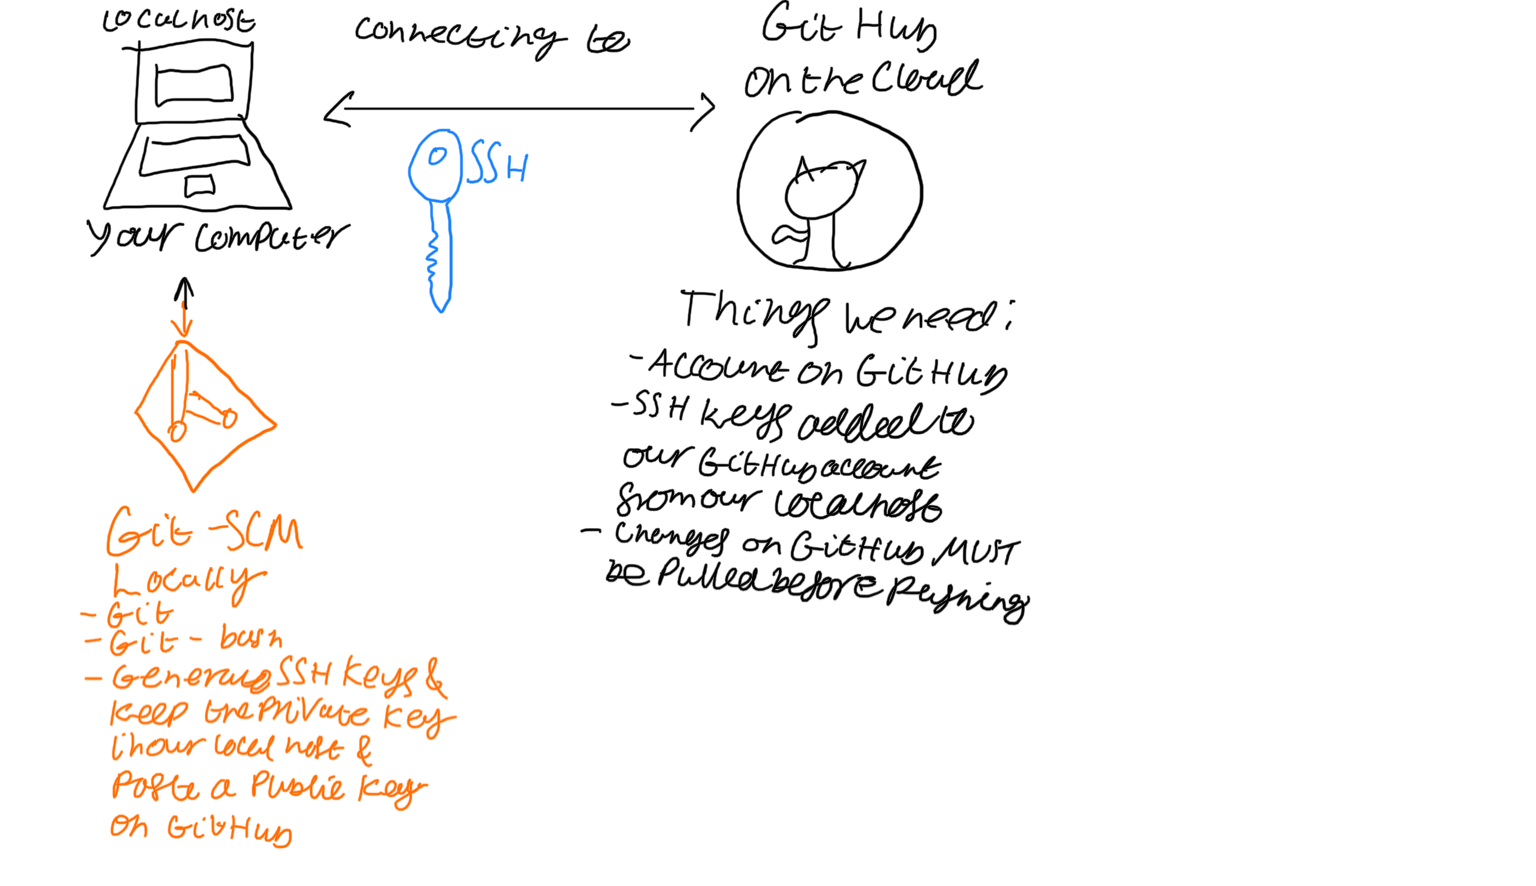 Localhost
connecting to
GitHub
on the Cloud
SSH
your computer
Things we need:
- Account on GitHub
- SSH keys added to
our GitHub account
from our localhost
- Changes on GitHub MUST
be Pulled before Pushing
Git-SCM
Locally
- Git
- Git-bash
- Generate SSH Keys &
keep the Private key
in our local host &
Paste a Public key
on GitHub